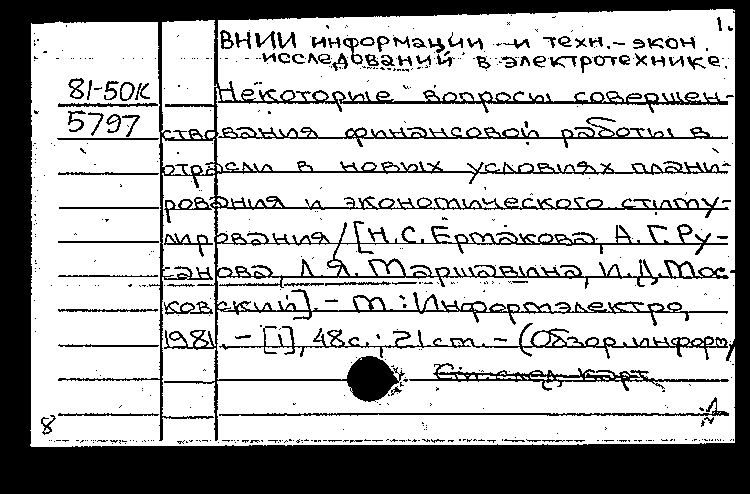 1.
ВНИИ информации и техн.-экон.
исследований в электротехнике.
81-50К Некоторые вопросы совершен-
5797 ствования финансовой работы в
отрасли в новых условиях плани-
рования и экономического стиму-
лирования / [Н.С. Ермакова, А.Г. Ру-
санова, Л.Я. Маршавина, И.Д. Мос-
ковский]. - М.: Информэлектро,
1981. - [1], 48с.; 21см. - (Обзор. информ/
См. след. карт.
8